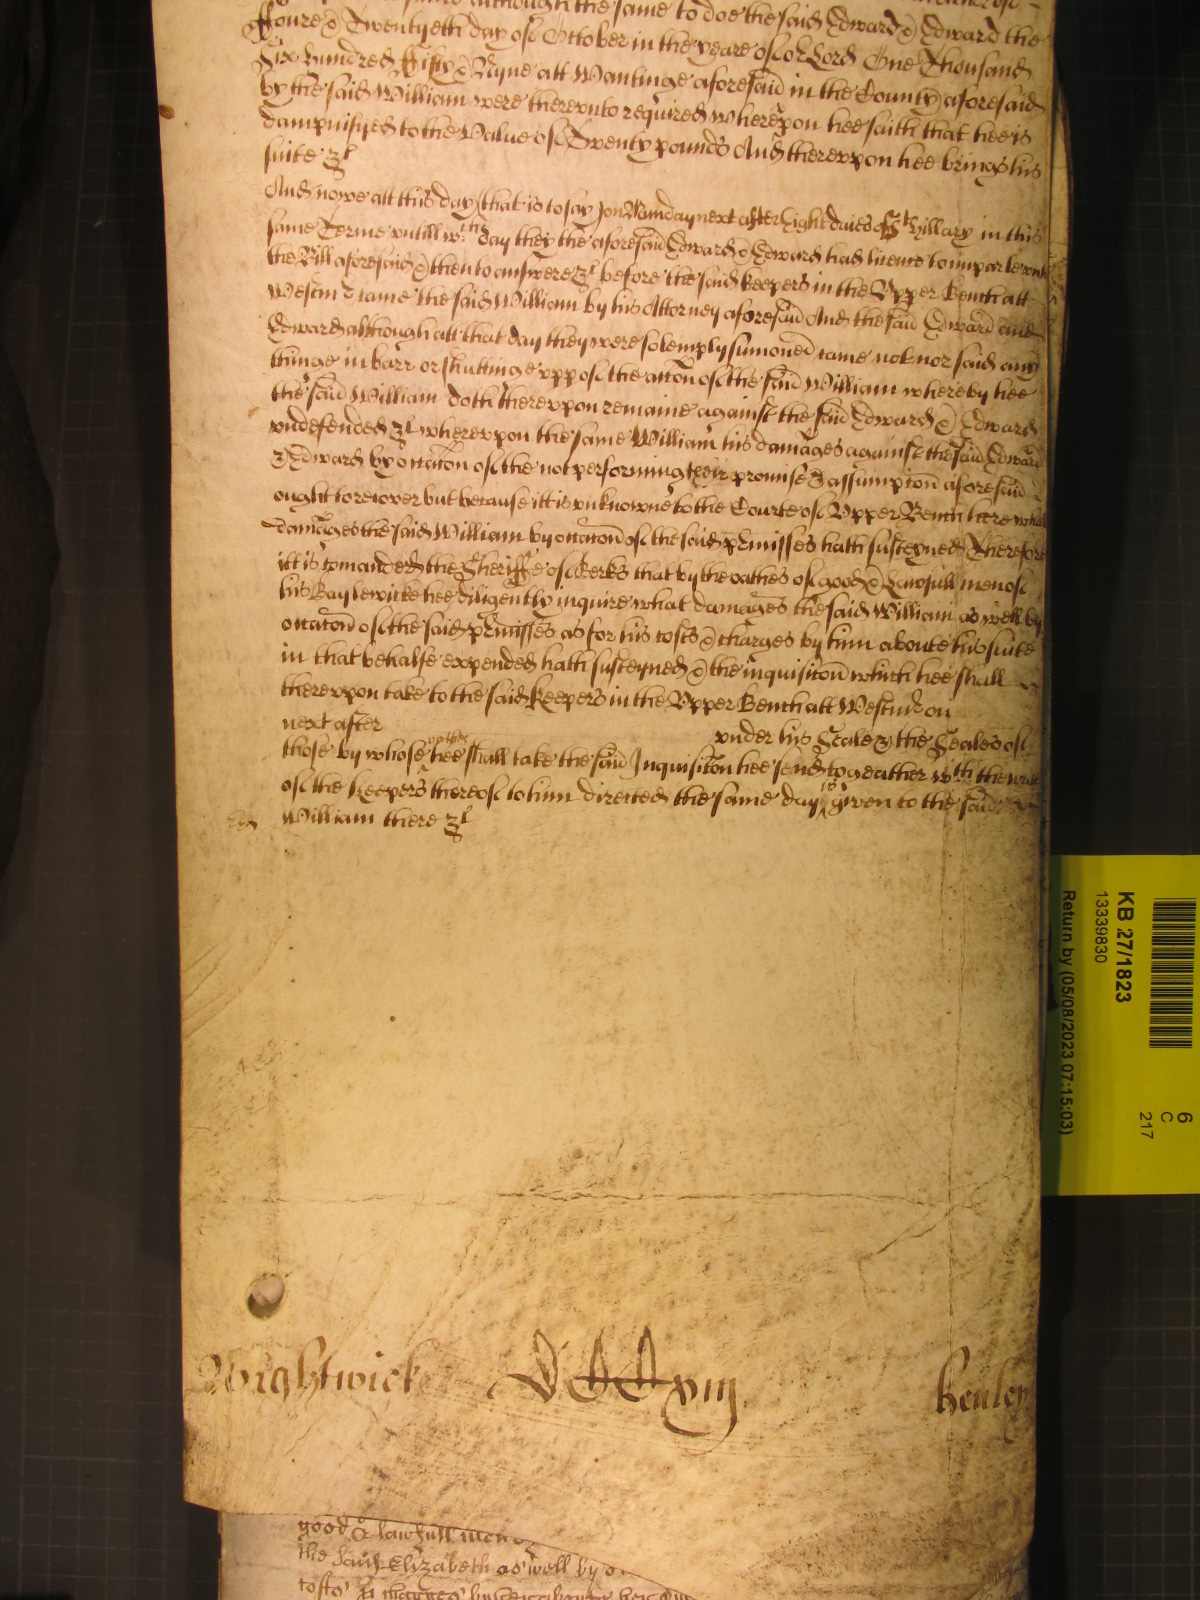 although the same to doe the said Edward & Edward the
ffoure & Twentyeth day of October in the yeare of or Lord One Thousand
Six hundred ffifty & Nyne att Wantinge aforesaid in the County aforesaid
by the said William were therevnto required wherevpon hee saith that hee is
dampnifyed to the Value of Twenty pounds And therevpon hee brings his
suite &c
And nowe att this day (that is to say) on Munday next after Eight daies of St Hillary in this
same Terme vntill wch day they the aforesaid Edward & Edward had licence to imparle vnto
the Bill aforesaid & then to answere &c before the said keepers in the Vpper Bench att
Westm came the said William by his Attorney aforesaid And the said Edward and
Edward although att that day they were solemply sumoned came not nor said any
thinge in barr or shuttinge vpp of the accon of the said William whereby hee
the said William doth therevpon remaine against the said Edward & Edward
vndefended &c wherevpon the same William his damages against the said Edward
& Edward by occacon of the not performing their promise & assumption aforesaid
ought to recover but because itt is vnknowne to the Courte of Vpper Bench here what
damages the said William by occacon of the said premisses hath susteyned Therefore
itt is comanded the Sheriffe of Berks that by the oathes of good & lawfull men of
his Baylewicke hee diligently inquire what damages the said William as well by
occacon of the said premisses as for his costs & charges by him aboute his suite
in that behalfe expended hath susteyned & the inquisicon which hee shall
therevpon take to the said keepers in the Vpper Bench att Westm on
next after vnder his Seale & the Seales of
those by whose oathes hee shall take the said Inquisicon hee send togeather wth the writt
of the keepers thereof to him directed the same day is given to the said
William there &c
Wightwick DCCxiij Henley
good & lawfull men of
the said Elizabeth as well by o
costs & charges by her aboute her su
KB 27/1823
13339830
Return by (05/08/2023 07:15:03)
6
C
217